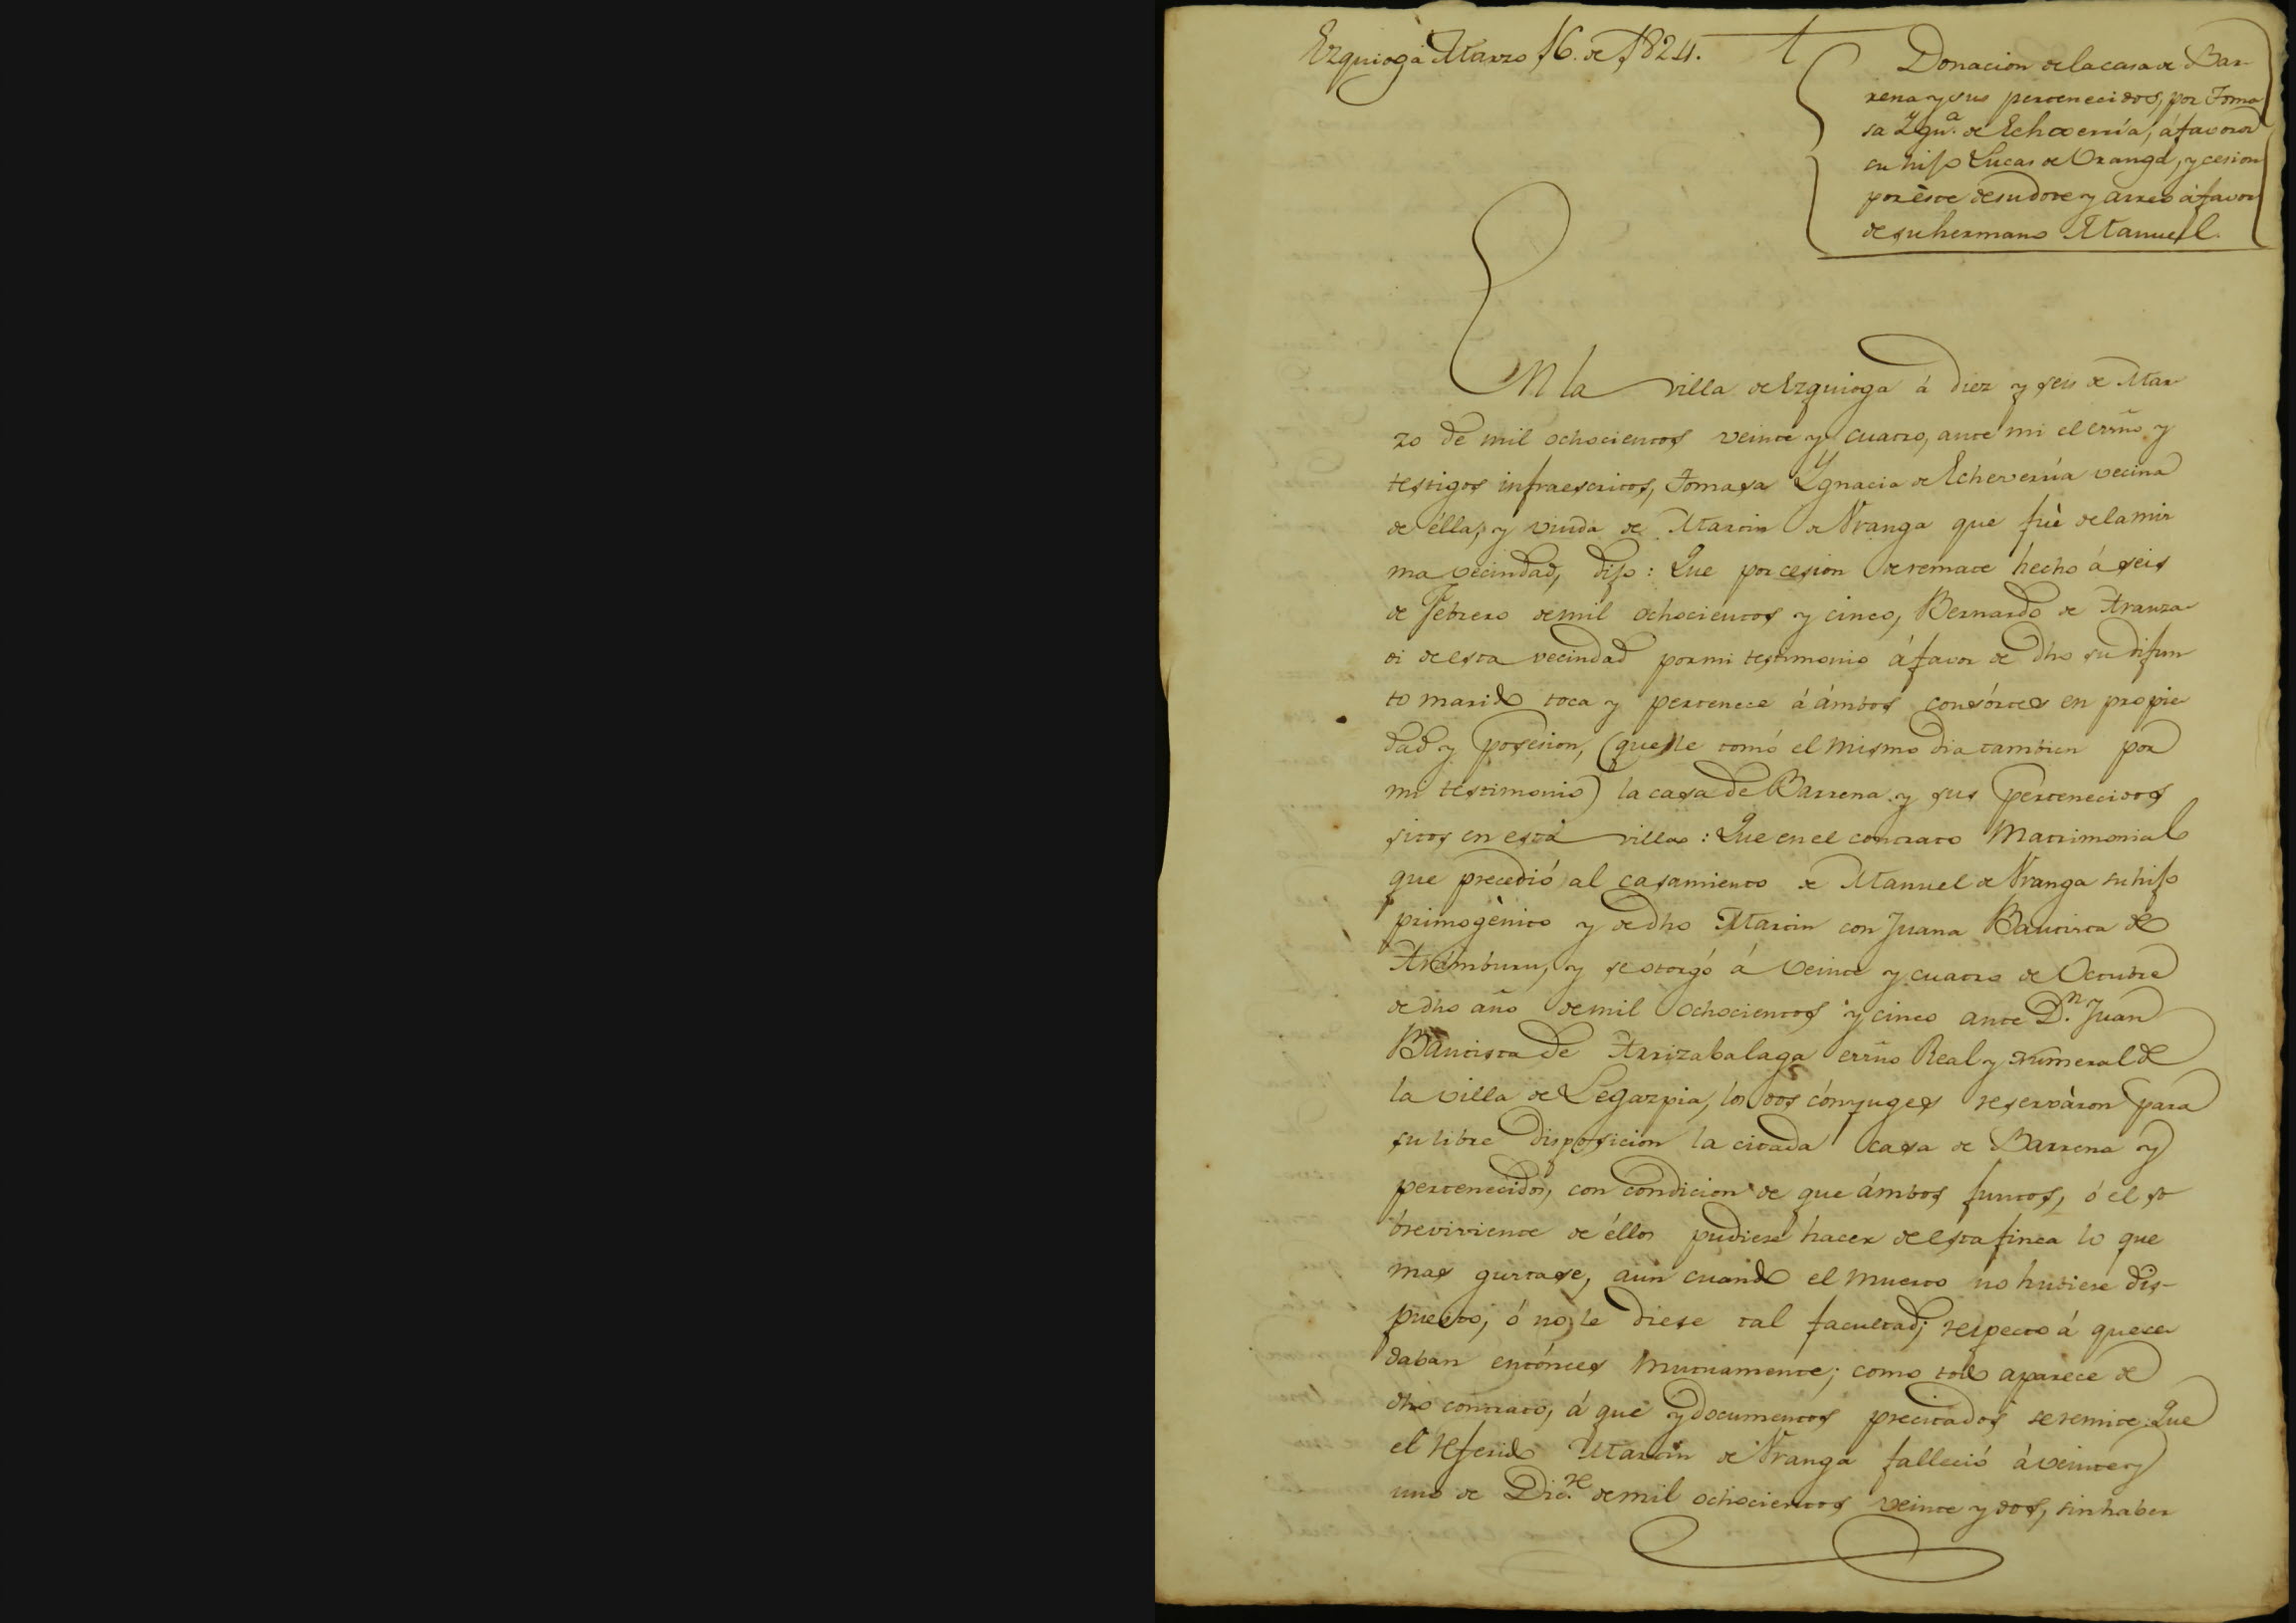 Ezquioga Marzo 16. de 1824.
Donacion de la casa de Bar-
rena y sus pertenecidos, por Toma
sa Ygn.ª de Echaverría, á favor de
su hijo Lucas de Oranga, y cesion
por este de su dote y arreo á favor
de su hermano Manuel.
En la villa de Ezquioga á diez y seis de Mar
zo de mil ochocientos veinte y cuatro, ante mi el errño y
testigos infraescritos, Tomasa Ygnacia de Echeverria vecina
de élla, y viuda de Martin de Vranga que fué de la mis
ma vecindad, dijo: Que por cesion de remate hecho á seis
de Febrero de mil ochocientos y cinco, Bernardo de Aranza
di de esta vecindad por mi testimonio á favor de dho su difun
to marido toca y pertenece á ámbos consórtes en propie
dad y posesion, (que se le tomó el mismo dia tambien por
mi testimonio) la casa de Barrena y sus pertenecidos
sitos en esta villa: Que en el contrato Matrimonial
que precedió al casamiento de Manuel de Vranga su hijo
primogénito y de dho Martin con Juana Bautista de
Aramburu, y se otorgó á veinte y cuatro de Octubre
de dho año de mil ochocientos y cinco ante D.n Juan
Bautista de Arrizabalaga errño Real y Numeral de
la villa de Legazpia, los dos cónyuges reserváron para
su libre disposicion la citada casa de Barrena y
pertenecidos, con condicion de que ámbos juntos, ó el so
breviviente de éllos pudiese hacer de esta finca lo que
mas gustase, aun cuando el muerto no hubiese dis-
puesto, ó no le diese tal facultad; respecto á que se la
daban entónces mutuamente; como todo aparece de
dho contrato, á que y documentos precitados se remite: Que
el referido Martin de Vranga falleció á veinte y
uno de Dic.re de mil ochocientos veinte y dos, sin haber